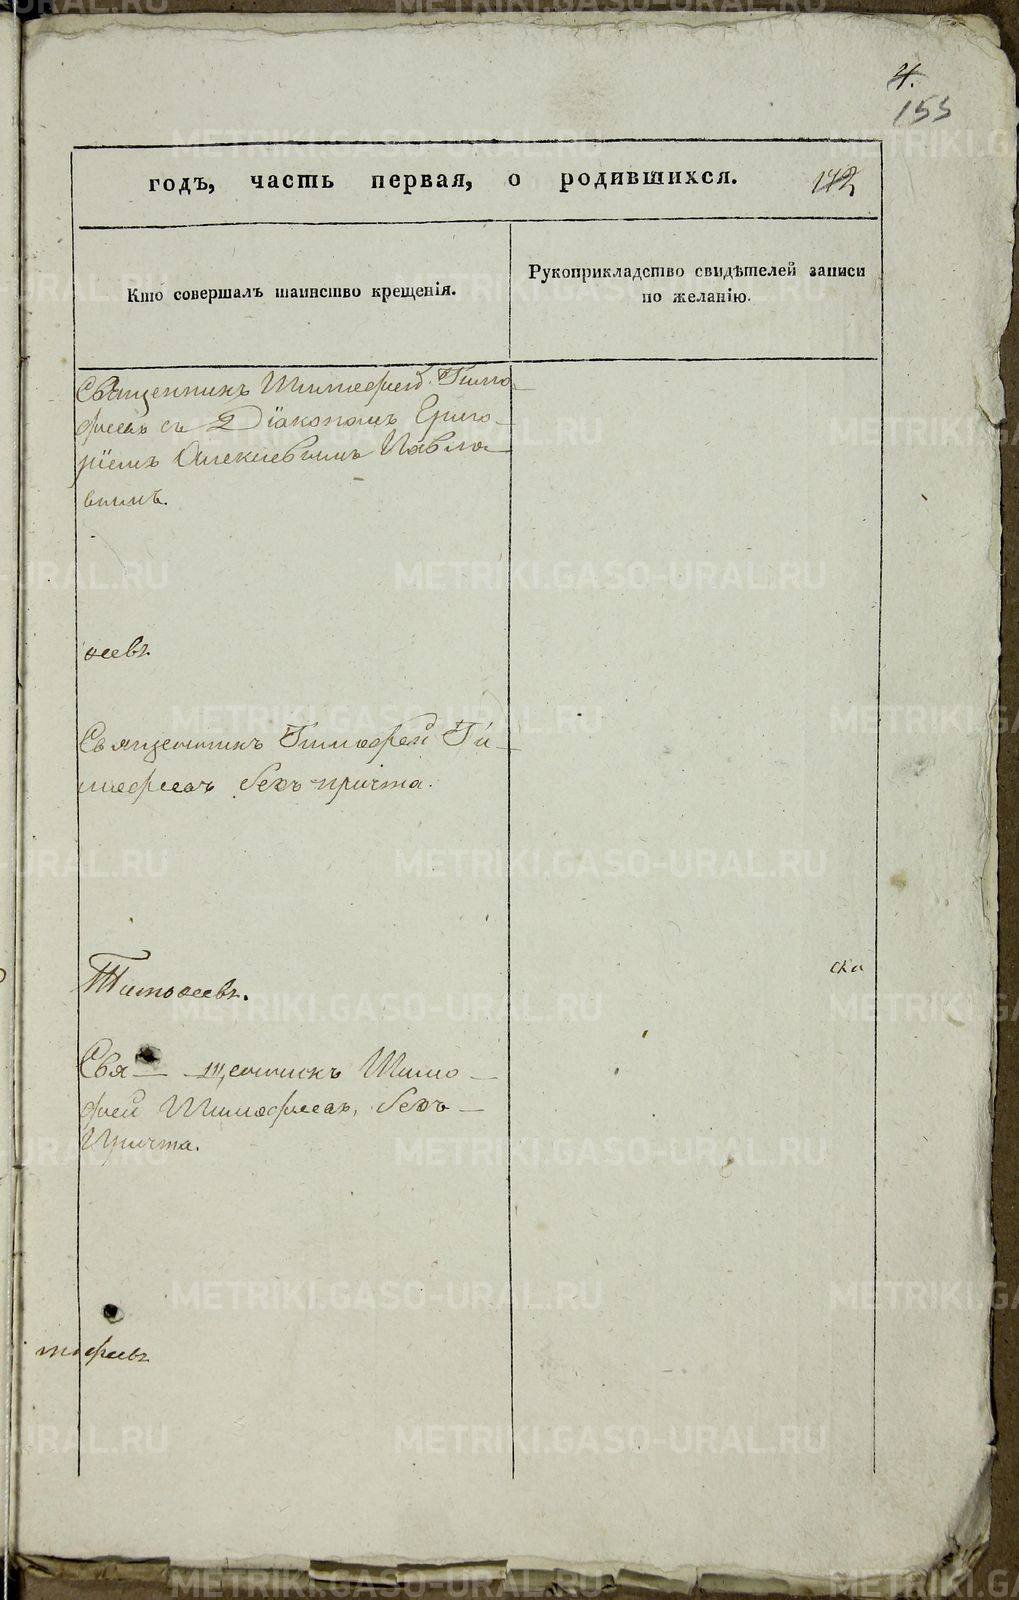 4.
153
годъ, часть первая, о родившихся.
142
Кто совершалъ таинство крещенія.
Рукоприкладство свидѣтелей записи
по желанію.
Священникъ Тимофей Тимо-
феевъ съ Діакономъ Григо-
ріемъ Алексіевымъ Павло-
вымъ.
ѳеевъ.
Священникъ Тимофей Ти-
мофеевъ безъ причта.
Тимоѳеевъ.
Свя- щенникъ Тимо-
фей Тимофеевъ, безъ-
Причта.
ска
мофеевъ
METRIKI.GASO-URAL.RU